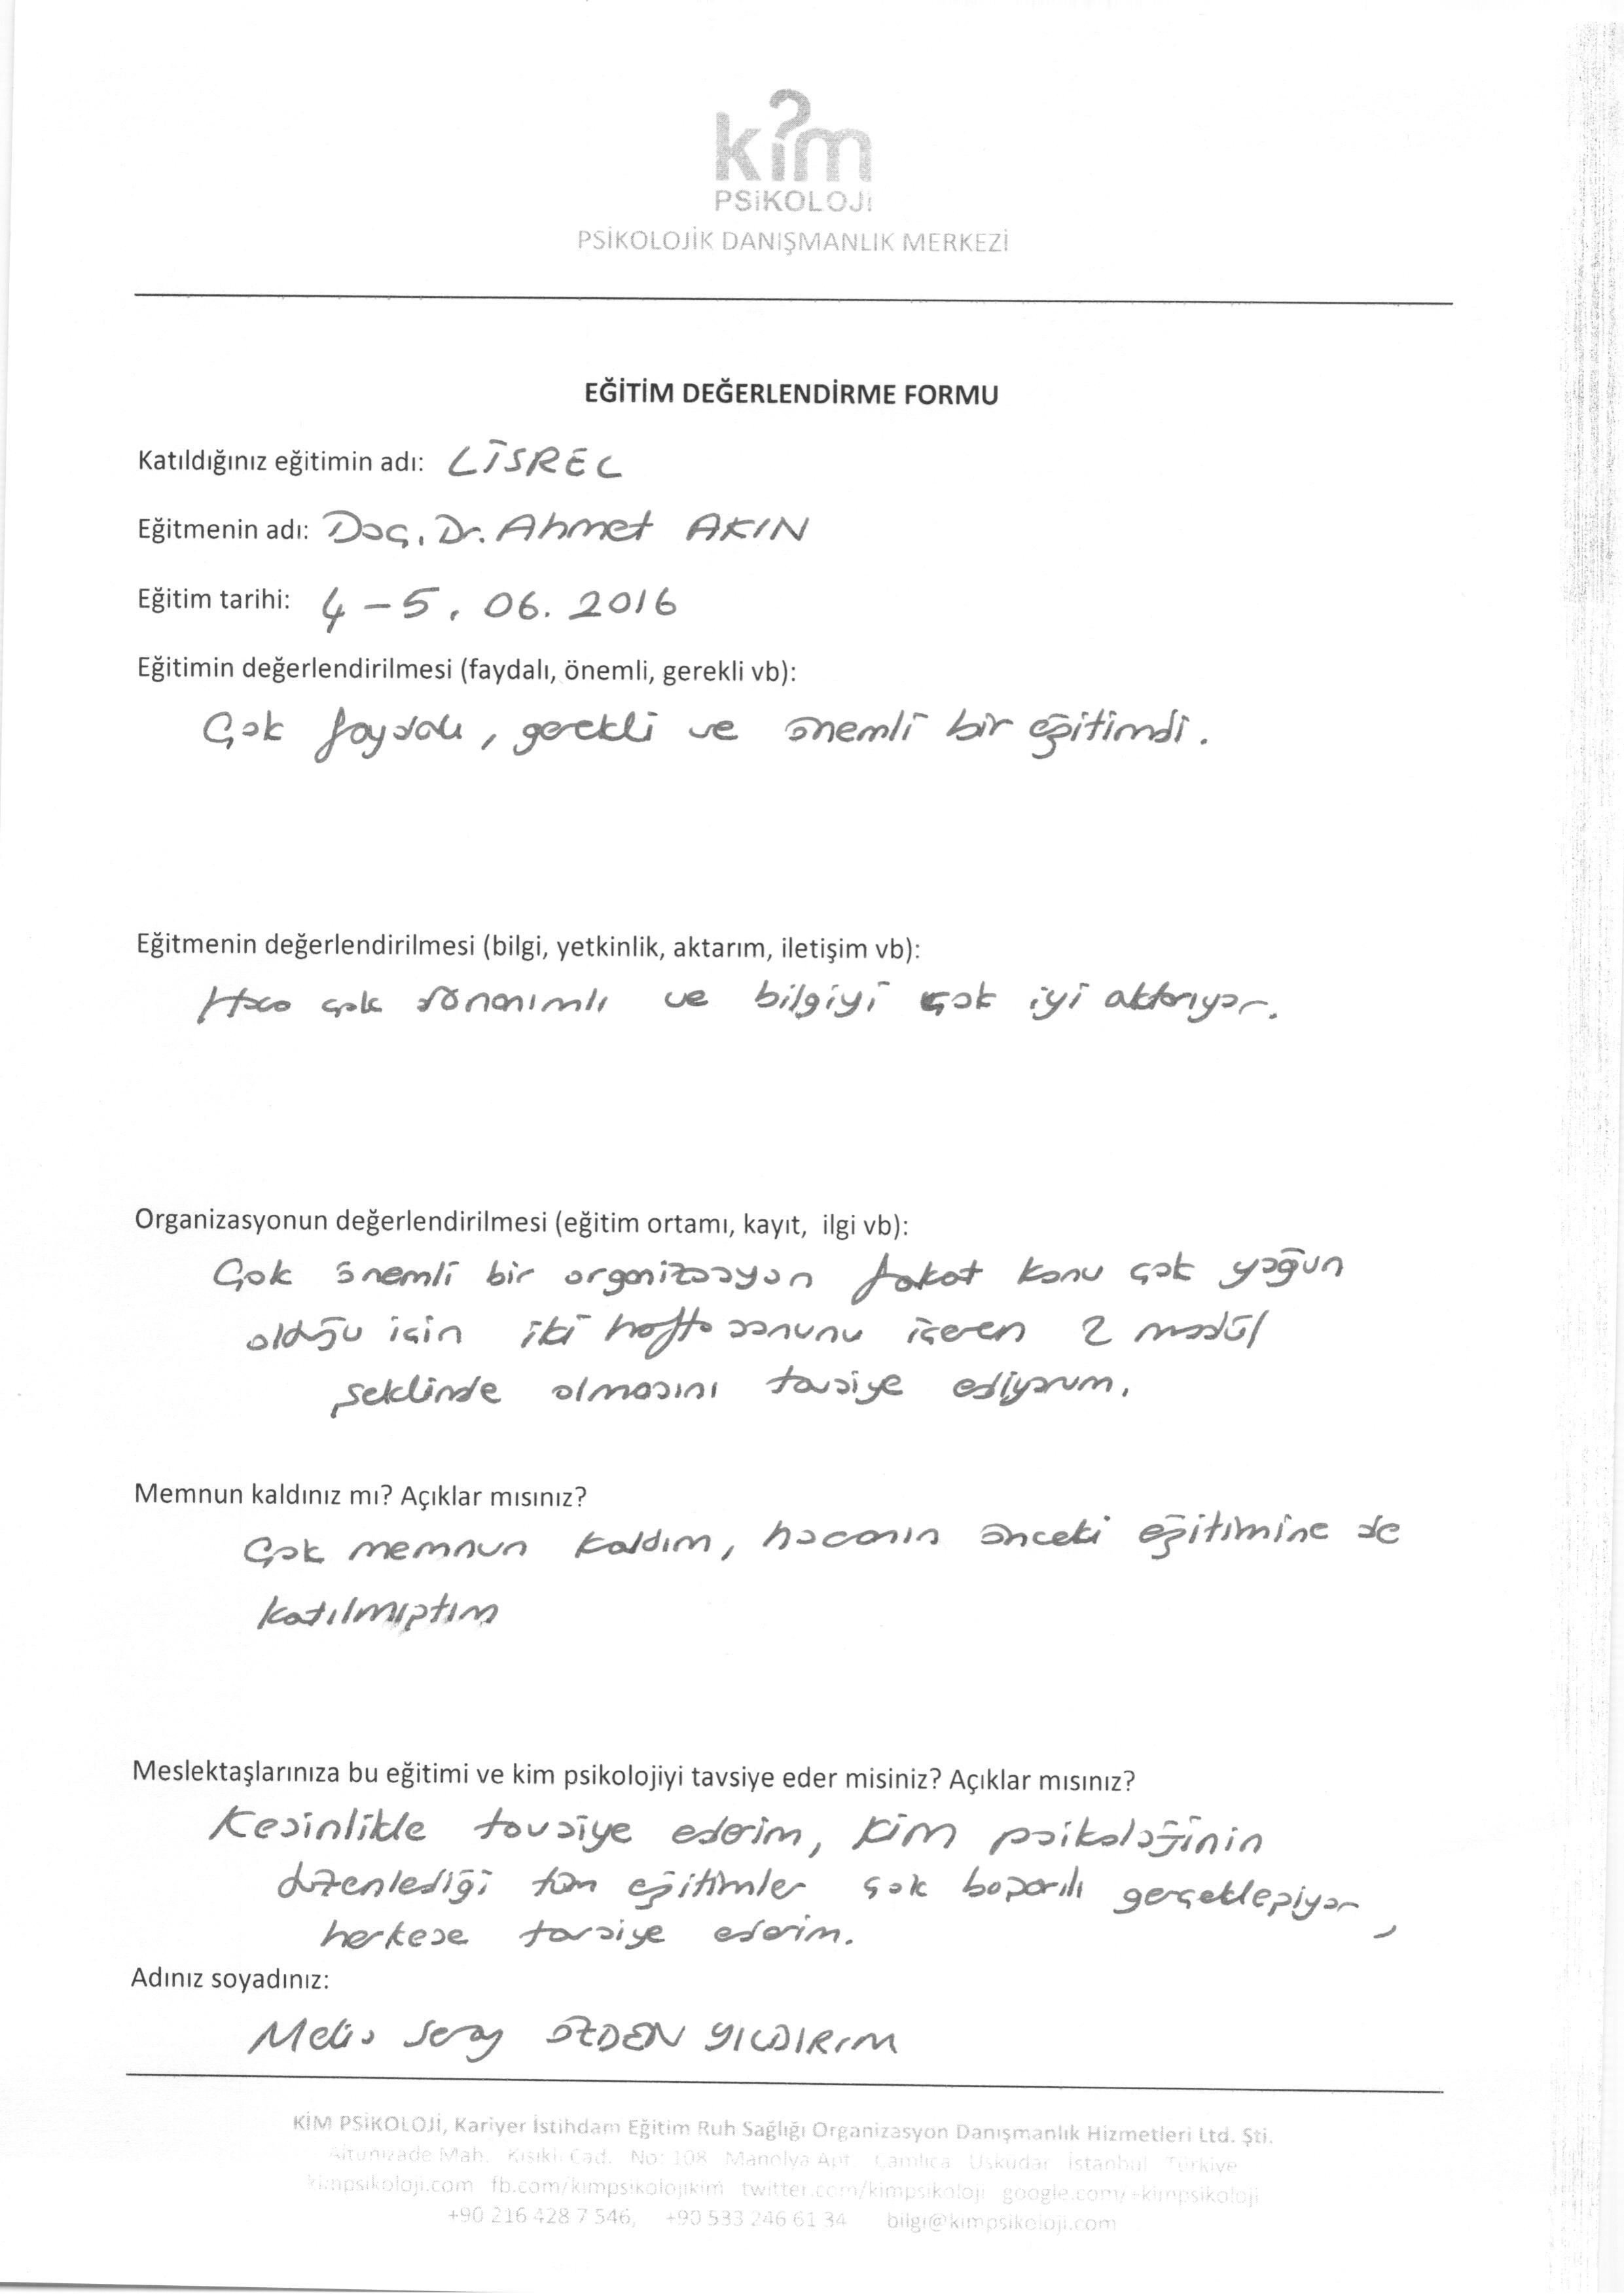 kim
PSİKOLOJİ
PSİKOLOJİK DANIŞMANLIK MERKEZİ
EĞİTİM DEĞERLENDİRME FORMU
Katıldığınız eğitimin adı: LİSREL
Eğitmenin adı: Doç. Dr. Ahmet AKIN
Eğitim tarihi: 4-5.06.2016
Eğitimin değerlendirilmesi (faydalı, önemli, gerekli vb):
Çok faydalı, gerekli ve önemli bir eğitimdi.
Eğitmenin değerlendirilmesi (bilgi, yetkinlik, aktarım, iletişim vb):
Hoca çok dönanımlı ve bilgiyi çok iyi aktarıyor.
Organizasyonun değerlendirilmesi (eğitim ortamı, kayıt, ilgi vb):
Çok önemli bir organizasyon fakat konu çok yoğun
olduğu için iki hafta sonunu içeren 2 modül
şeklinde olmasını tavsiye ediyorum.
Memnun kaldınız mı? Açıklar mısınız?
Çok memnun kaldım, hocanın önceki eğitimine de
katılmıştım
Meslektaşlarınıza bu eğitimi ve kim psikolojiyi tavsiye eder misiniz? Açıklar mısınız?
Kesinlikle tavsiye ederim, kim psikolojinin
düzenlediği tüm eğitimler çok başarılı gerçekleşiyor,
herkese tavsiye ederim.
Adınız soyadınız:
Melis Seray ÖZDEN YILDIRIM
KİM PSİKOLOJİ, Kariyer İstihdam Eğitim Ruh Sağlığı Organizasyon Danışmanlık Hizmetleri Ltd. Şti.
Altunizade Mah. Kısıklı Cad. No: 108 Manolya Apt. Çamlıca Üsküdar İstanbul Türkiye
kimpsikoloji.com fb.com/kimpsikolojikim twitter.com/kimpsikoloji google.com/+kimpsikoloji
+90 216 428 7 546, +90 533 246 61 34 bilgi@kimpsikoloji.com